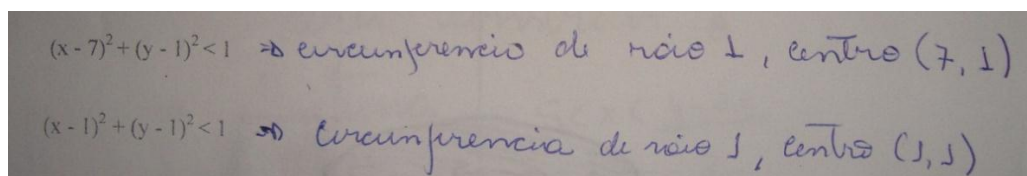 (x - 7)² + (y - 1)² < 1 ⇒ circunferencio de raio 1, centro (7, 1)
(x - 1)² + (y - 1)² < 1 ⇒ circunferencia de raio 1, centro (1, 1)